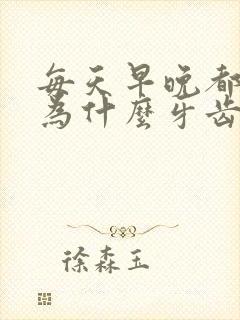 每天早晚都
為什麼牙齒
徐森玉